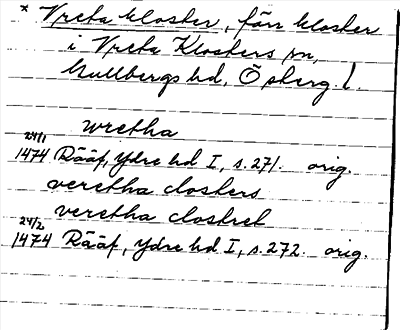 * Vreta kloster, förr kloster
i Vreta Klosters sn,
Gullbergs hd, Ö posterg. l.
wretha
24/1
1474 Rääf, Ydre hd I, s. 271. orig.
vcretha closters
vcretha clostret
24/2
1474 Rääf, Ydre hd I, s. 272. orig.